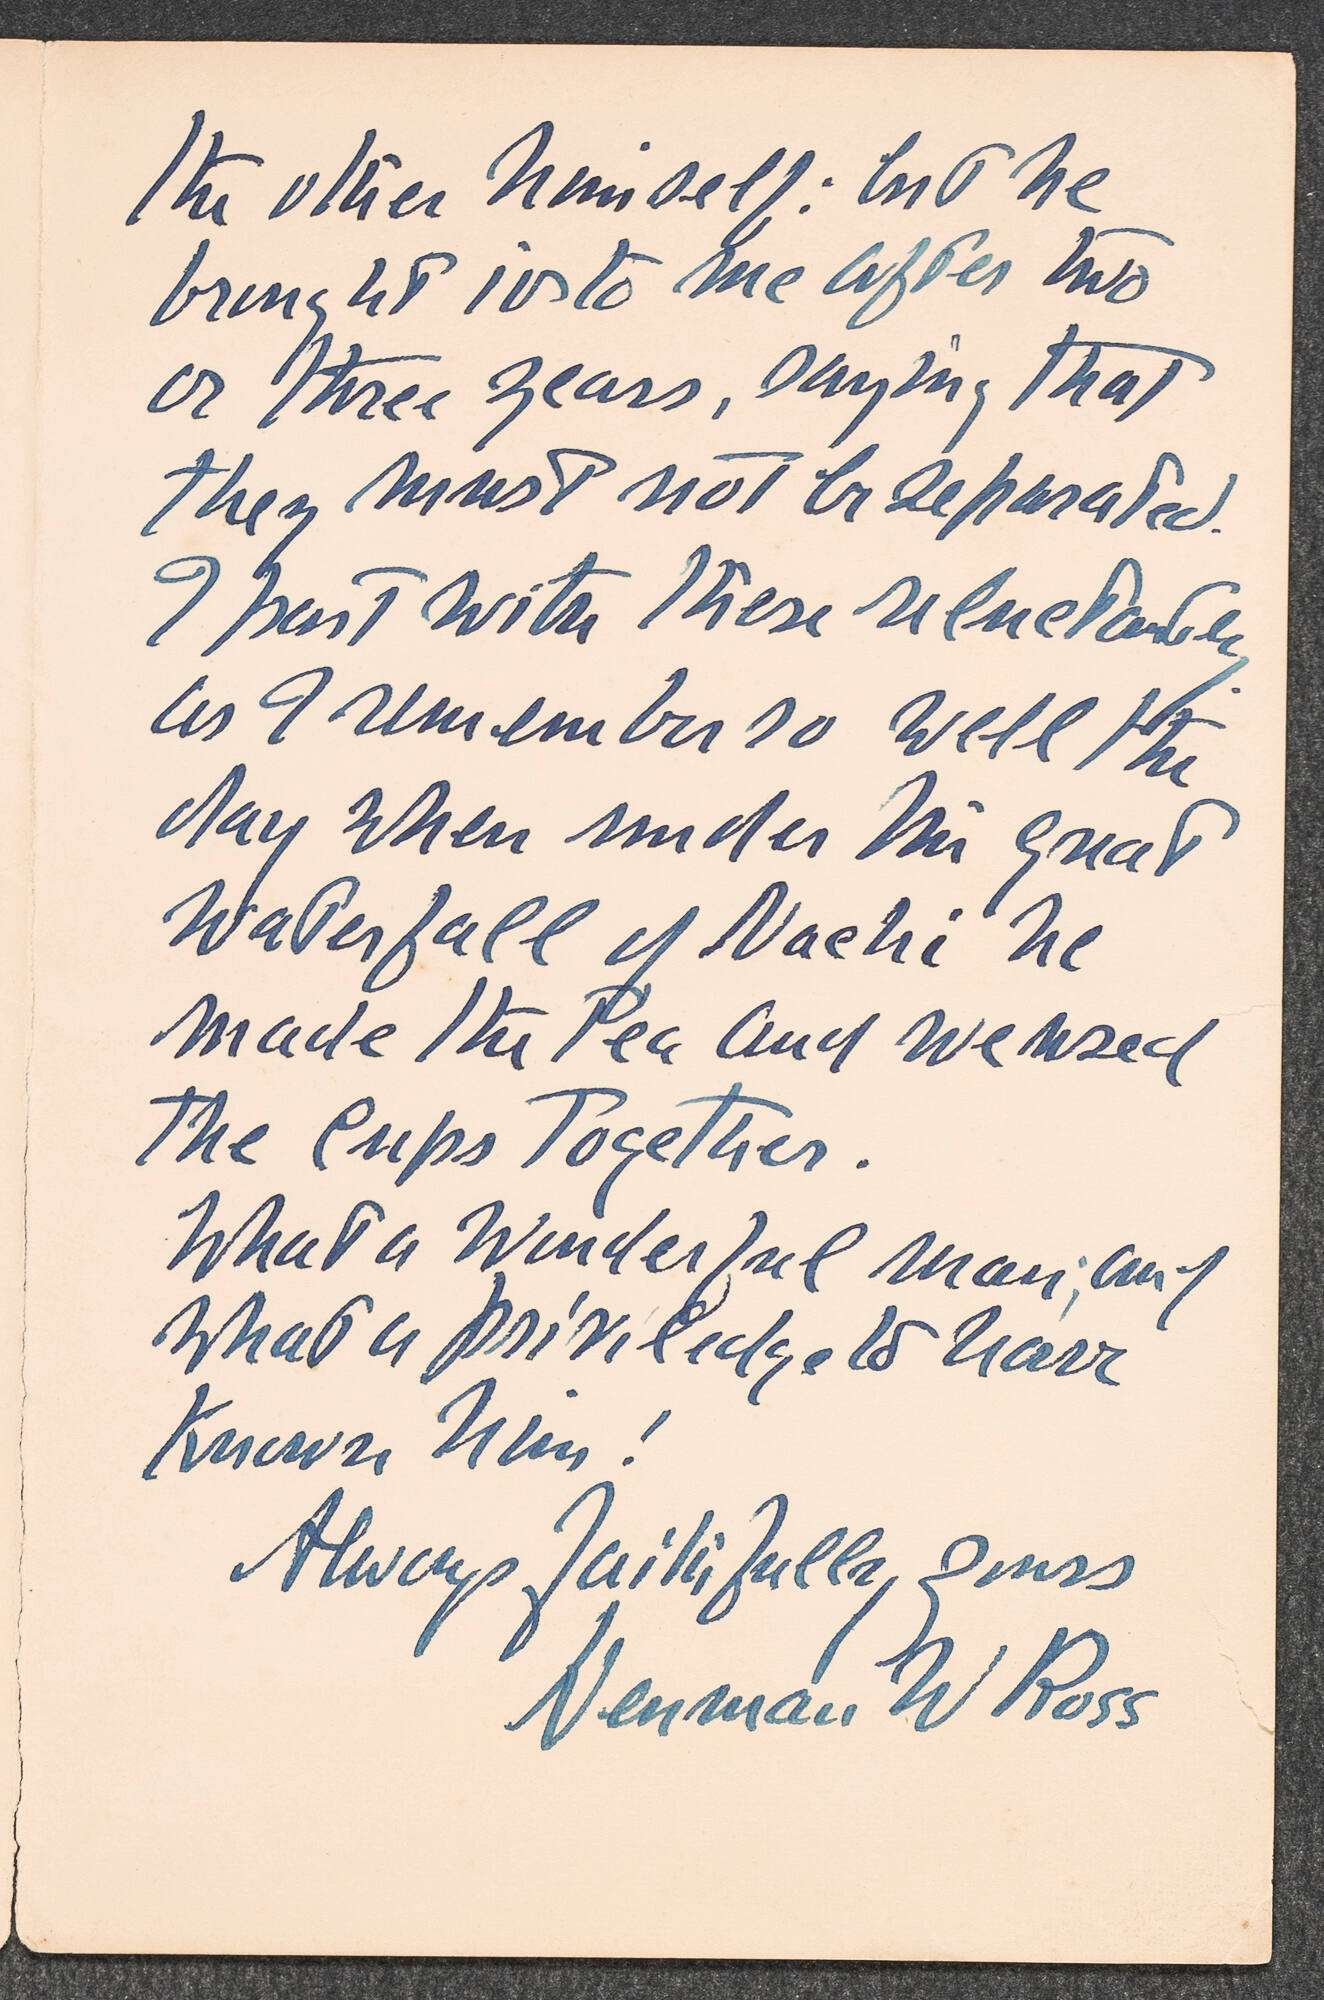 the other himself: but he
brought it to me after two
or three years, saying that
they must not be separated.
I part with these reluctantly
as I remember so well the
day when under the great
Waterfall of Nachi he
made the Tea and we used
the Cups Together.
What a wonderful man; and
what a priviledge to have
known him!
Always faithfully yours
Denman W Ross